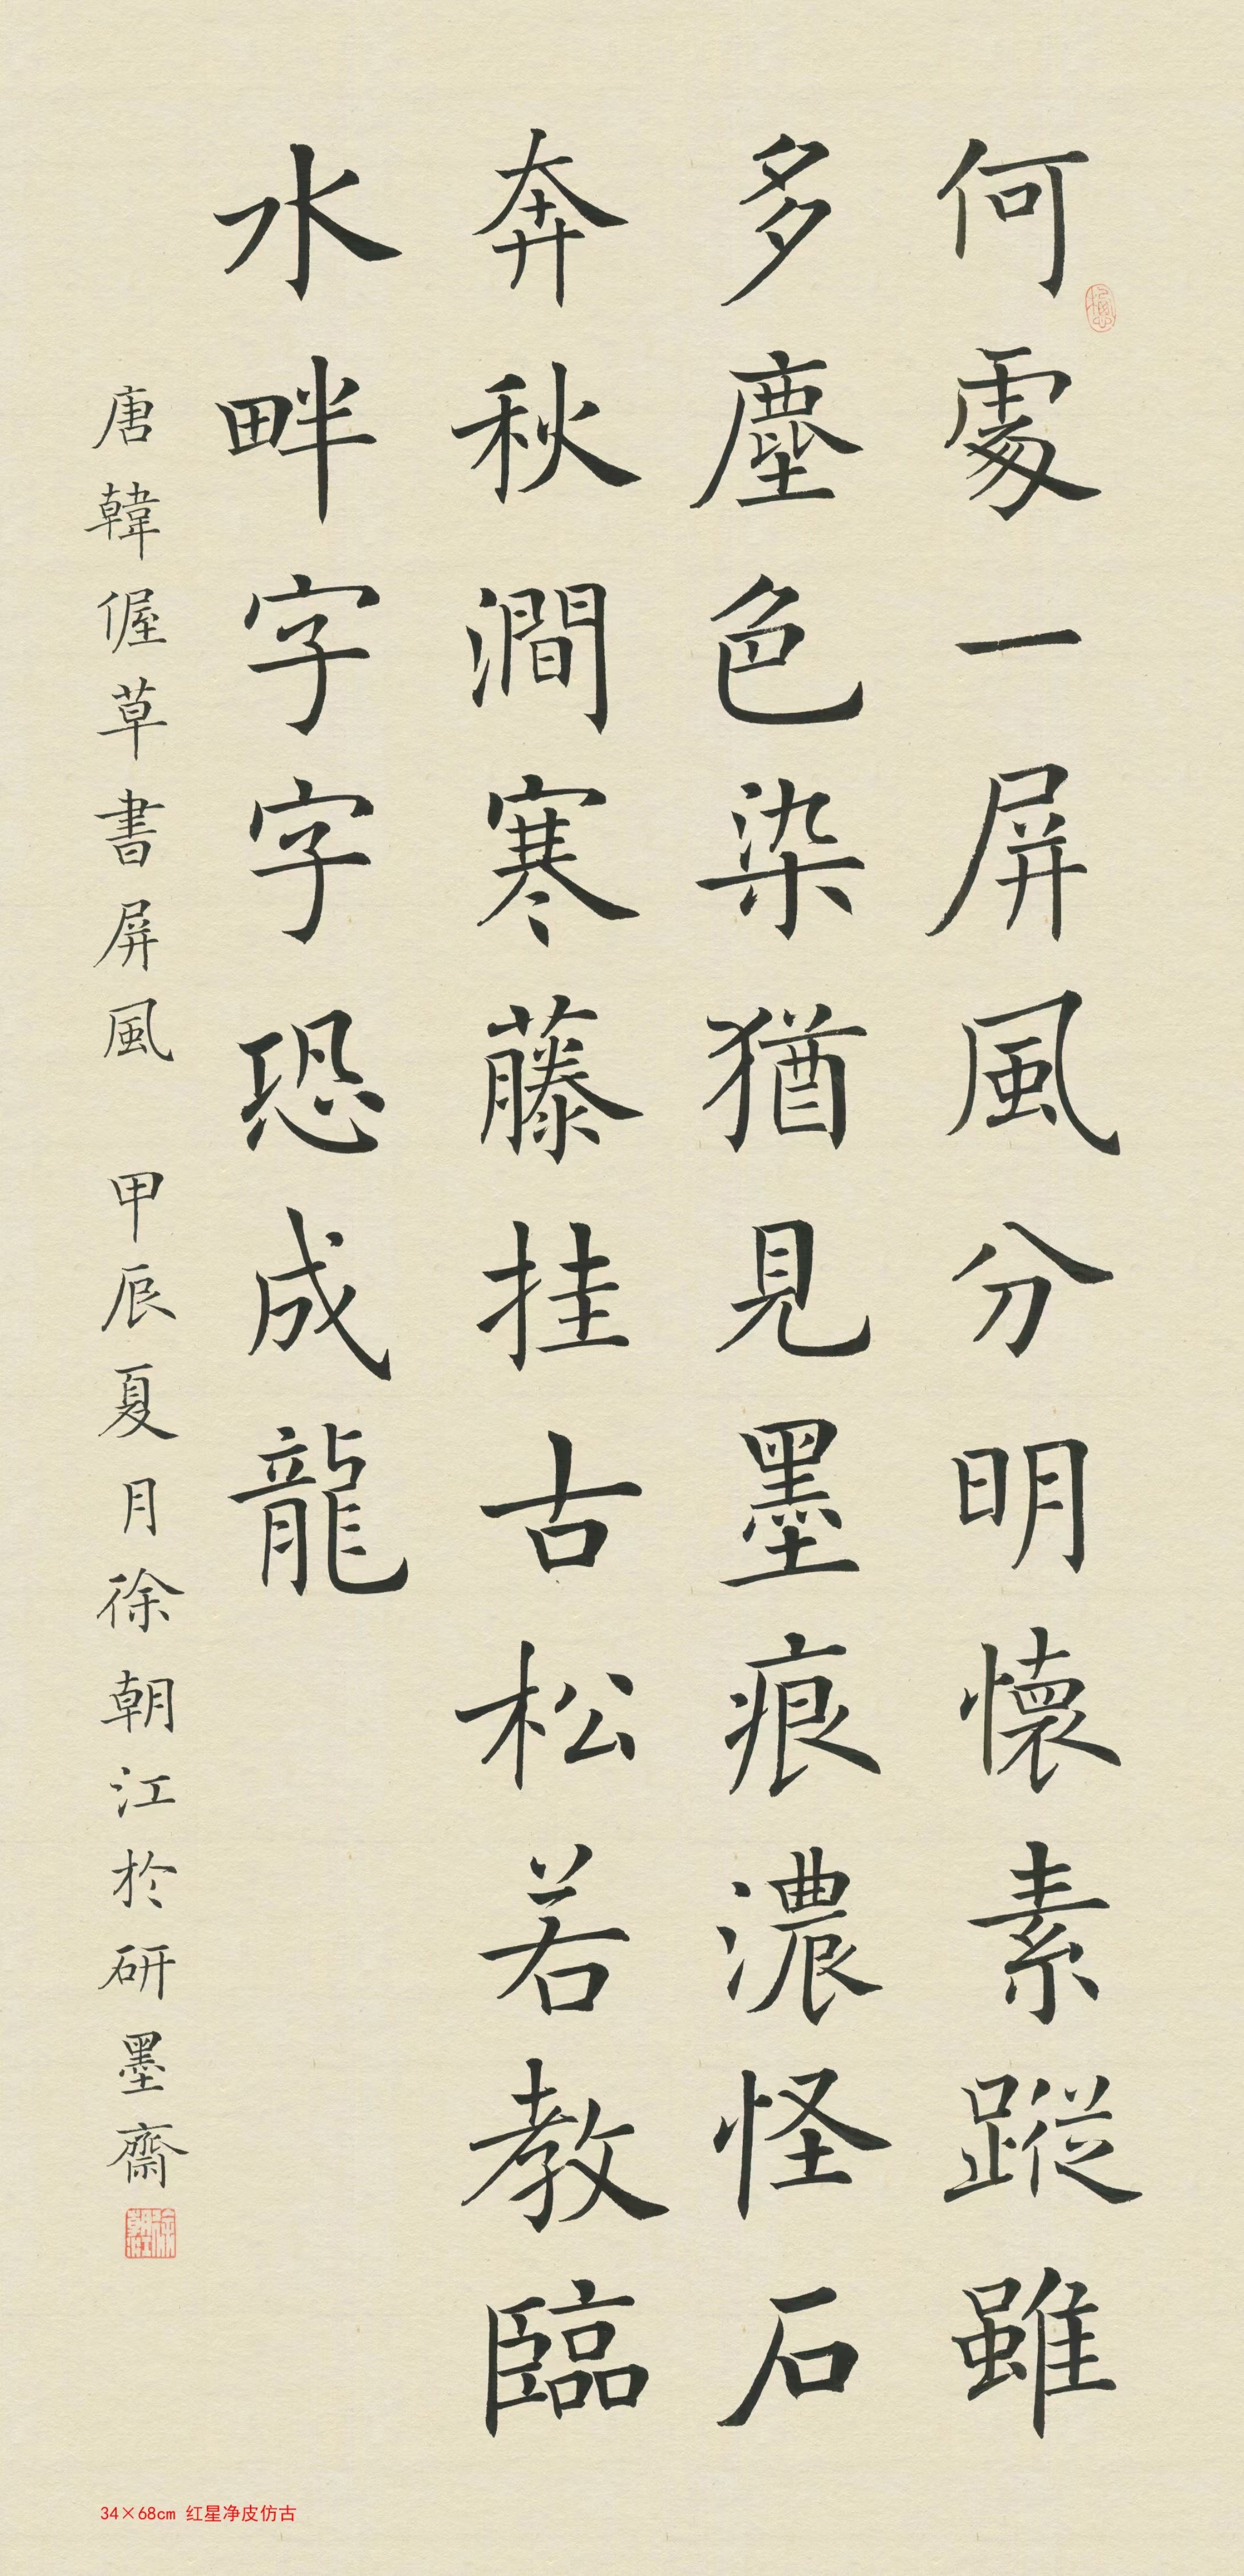 何處一屏風分明懷素蹤雖
多塵色染猶見墨痕濃怪石
奔秋澗寒藤挂古松若教臨
水畔字字恐成龍
唐韓偓草書屏風 甲辰夏月徐朝江於研墨齋
34×68cm 红星净皮仿古